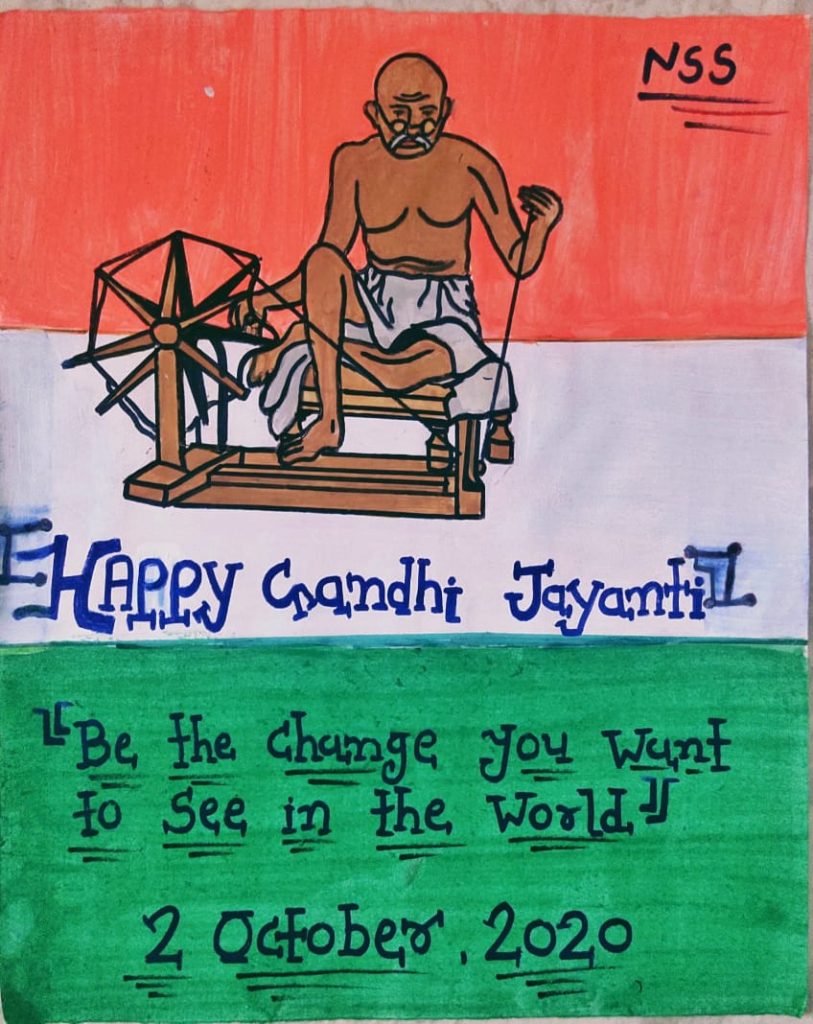 NSS
Happy Gandhi Jayanti
"Be the change you want
to See in the World"
2 October, 2020